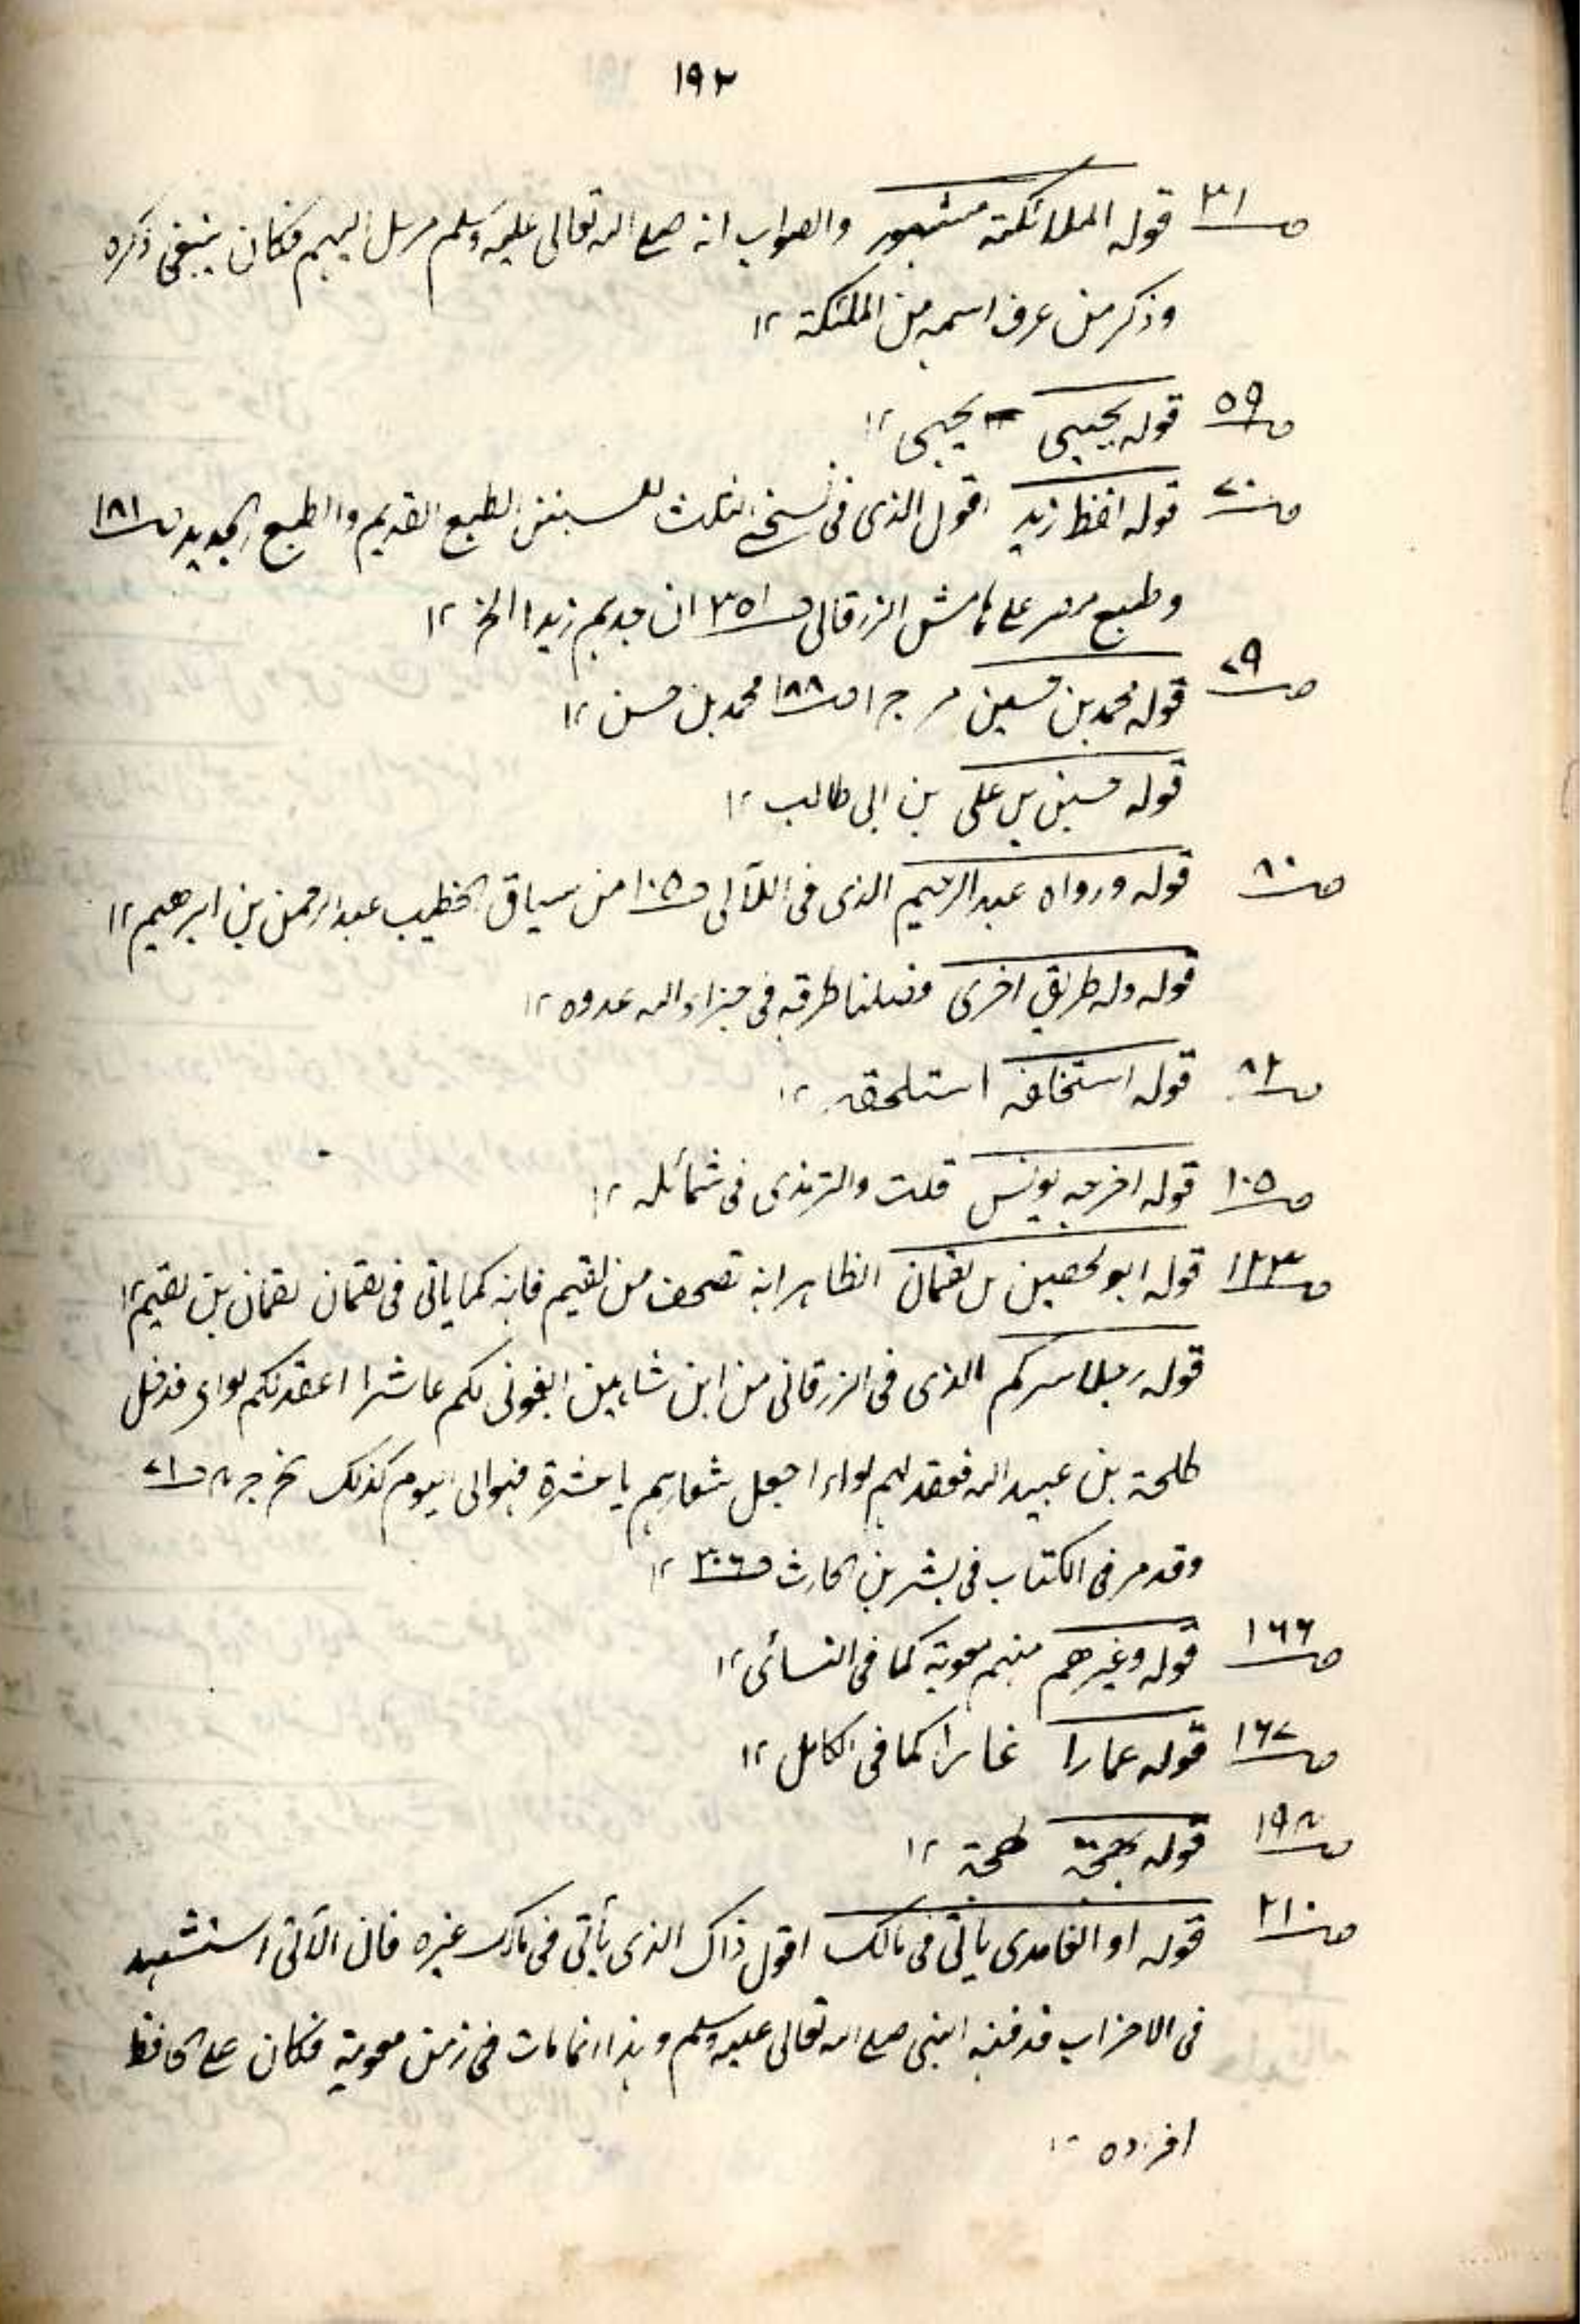 ١٩٢
ص٣١ قوله الملائكته مشهور والصواب انه صلى الله تعالى عليه وسلم مرسل اليهم فكان ينبغى ذكره
وذكر من عرف اسمه من الملئكة ١٢
ص٥٩ قوله يحيى يحيى ١٢
ص٧٠ قوله افظ زيد اقول الذى فى نسخى الثلث للسنن الطبع القديم والطبع الجديد ص١٨١
وطبع مصر على هامش الزرقانى ص٣٥١ ان جديم زيدا الخ ١٢
ص٧٩ قوله محمد بن حسين مر ج ١ ص١٨٨ محمد بن حسن ١٢
قوله حسين بن على بن ابى طالب ١٢
ص٨٠ قوله ورواه عبد الرحيم الذى فى اللآلى ص١٠٥ من سياق الخطيب عبد الرحمن بن ابرهيم ١٢
قوله وله طريق اخرى فصلنا طرقه فى جزاء الله عدوه ١٢
ص٨٢ قوله استخلفه استلحقه ١٢
ص١٠٥ قوله اخرجه يونس قلت والترمذى فى شمائله ١٢
ص١٢٣ قوله ابو الحصين بن لقمان الظاهر انه تصحف من لقيم فانه كما ياتى فى لقمان لقمان بن لقيم ١٢
قوله رجلا سركم الذى فى الزرقانى من ابن شاهين ابغونى لكم عاشرا اعقد لكم لواء فدخل
طلحة بن عبيد الله فعقد لهم لواء اجعل شعارهم يا عشرة فهو الى اليوم كذلك ج ٤ ص٧١
وقد مر فى الكتاب فى بشر بن الحارث ص٣٠٦ ١٢
ص١٦٦ قوله وغيرهم منهم معوية كما فى النسائى ١٢
ص١٦٧ قوله عمارا غمارا كما فى الكامل ١٢
ص١٩٤ قوله طحة ١٢
ص٢١٠ قوله او الغامدى ياتى فى مالك اقول ذاك الذى يأتى فى مالك غيره فان الآتى استشهد
فى الاحزاب فدفنه النبى صلى الله تعالى عليه وسلم وهذا انما مات فى زمن معوية فكان على الحافظ
افراده ١٢